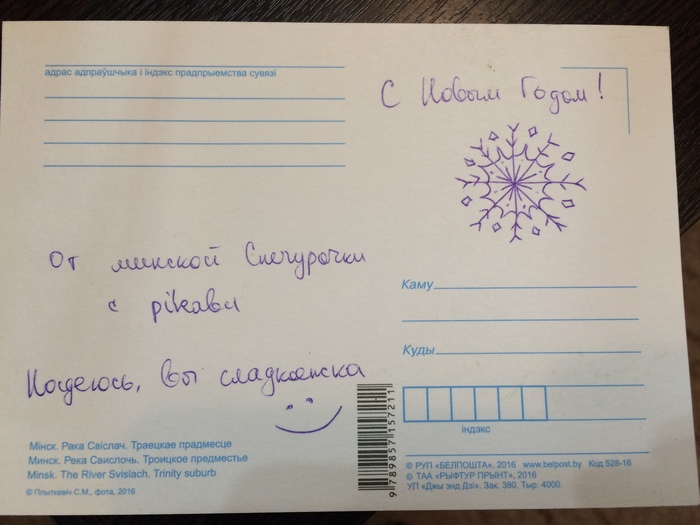 адрас адпраўшчыка і індэкс прадпрыемства сувязі
С Новым Годом!
От минской Снегурочки
с pikabu
Надеюсь, Вы сладкоежка
Каму
Куды
індэкс
Мінск. Рака Свіслач. Траецкае прадмесце
Минск. Река Свислочь. Троицкое предместье
Minsk. The River Svislach. Trinity suburb
© Плыткевіч С.М., фота, 2016
9 789857 157211
© РУП «БЕЛПОШТА», 2016 www.belpost.by Код 528-16
© ТАА «РЫФТУР ПРЫНТ», 2016
УП «Джы энд Дзі». Зак. 380. Тыр. 4000